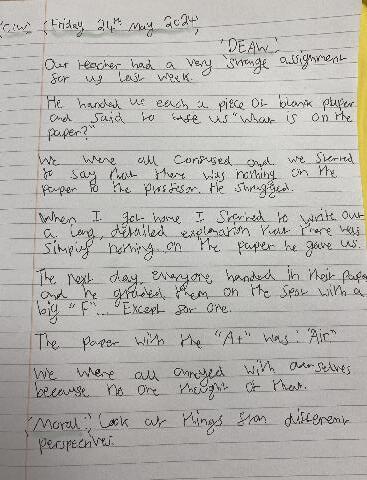 C/W Friday 24th May 2024
'DEAW'
Our teacher had a very strange assignment
for us last week.
He handed us each a piece of blank paper
and said to us "What is on the
paper?"
We were all confused and we started
to say that there was nothing on the
paper to the professor. He shrugged.
When I got home I started to write out
a long, detailed explanation that there was
simply nothing on the paper he gave us.
The next day, everyone handed in their paper
and he graded them on the spot with a
big "F"... Except for one.
The paper with the "A+" was: "Air"
We were all annoyed with ourselves
because no one thought of that.
(Moral:) Look at things from different
perspectives.